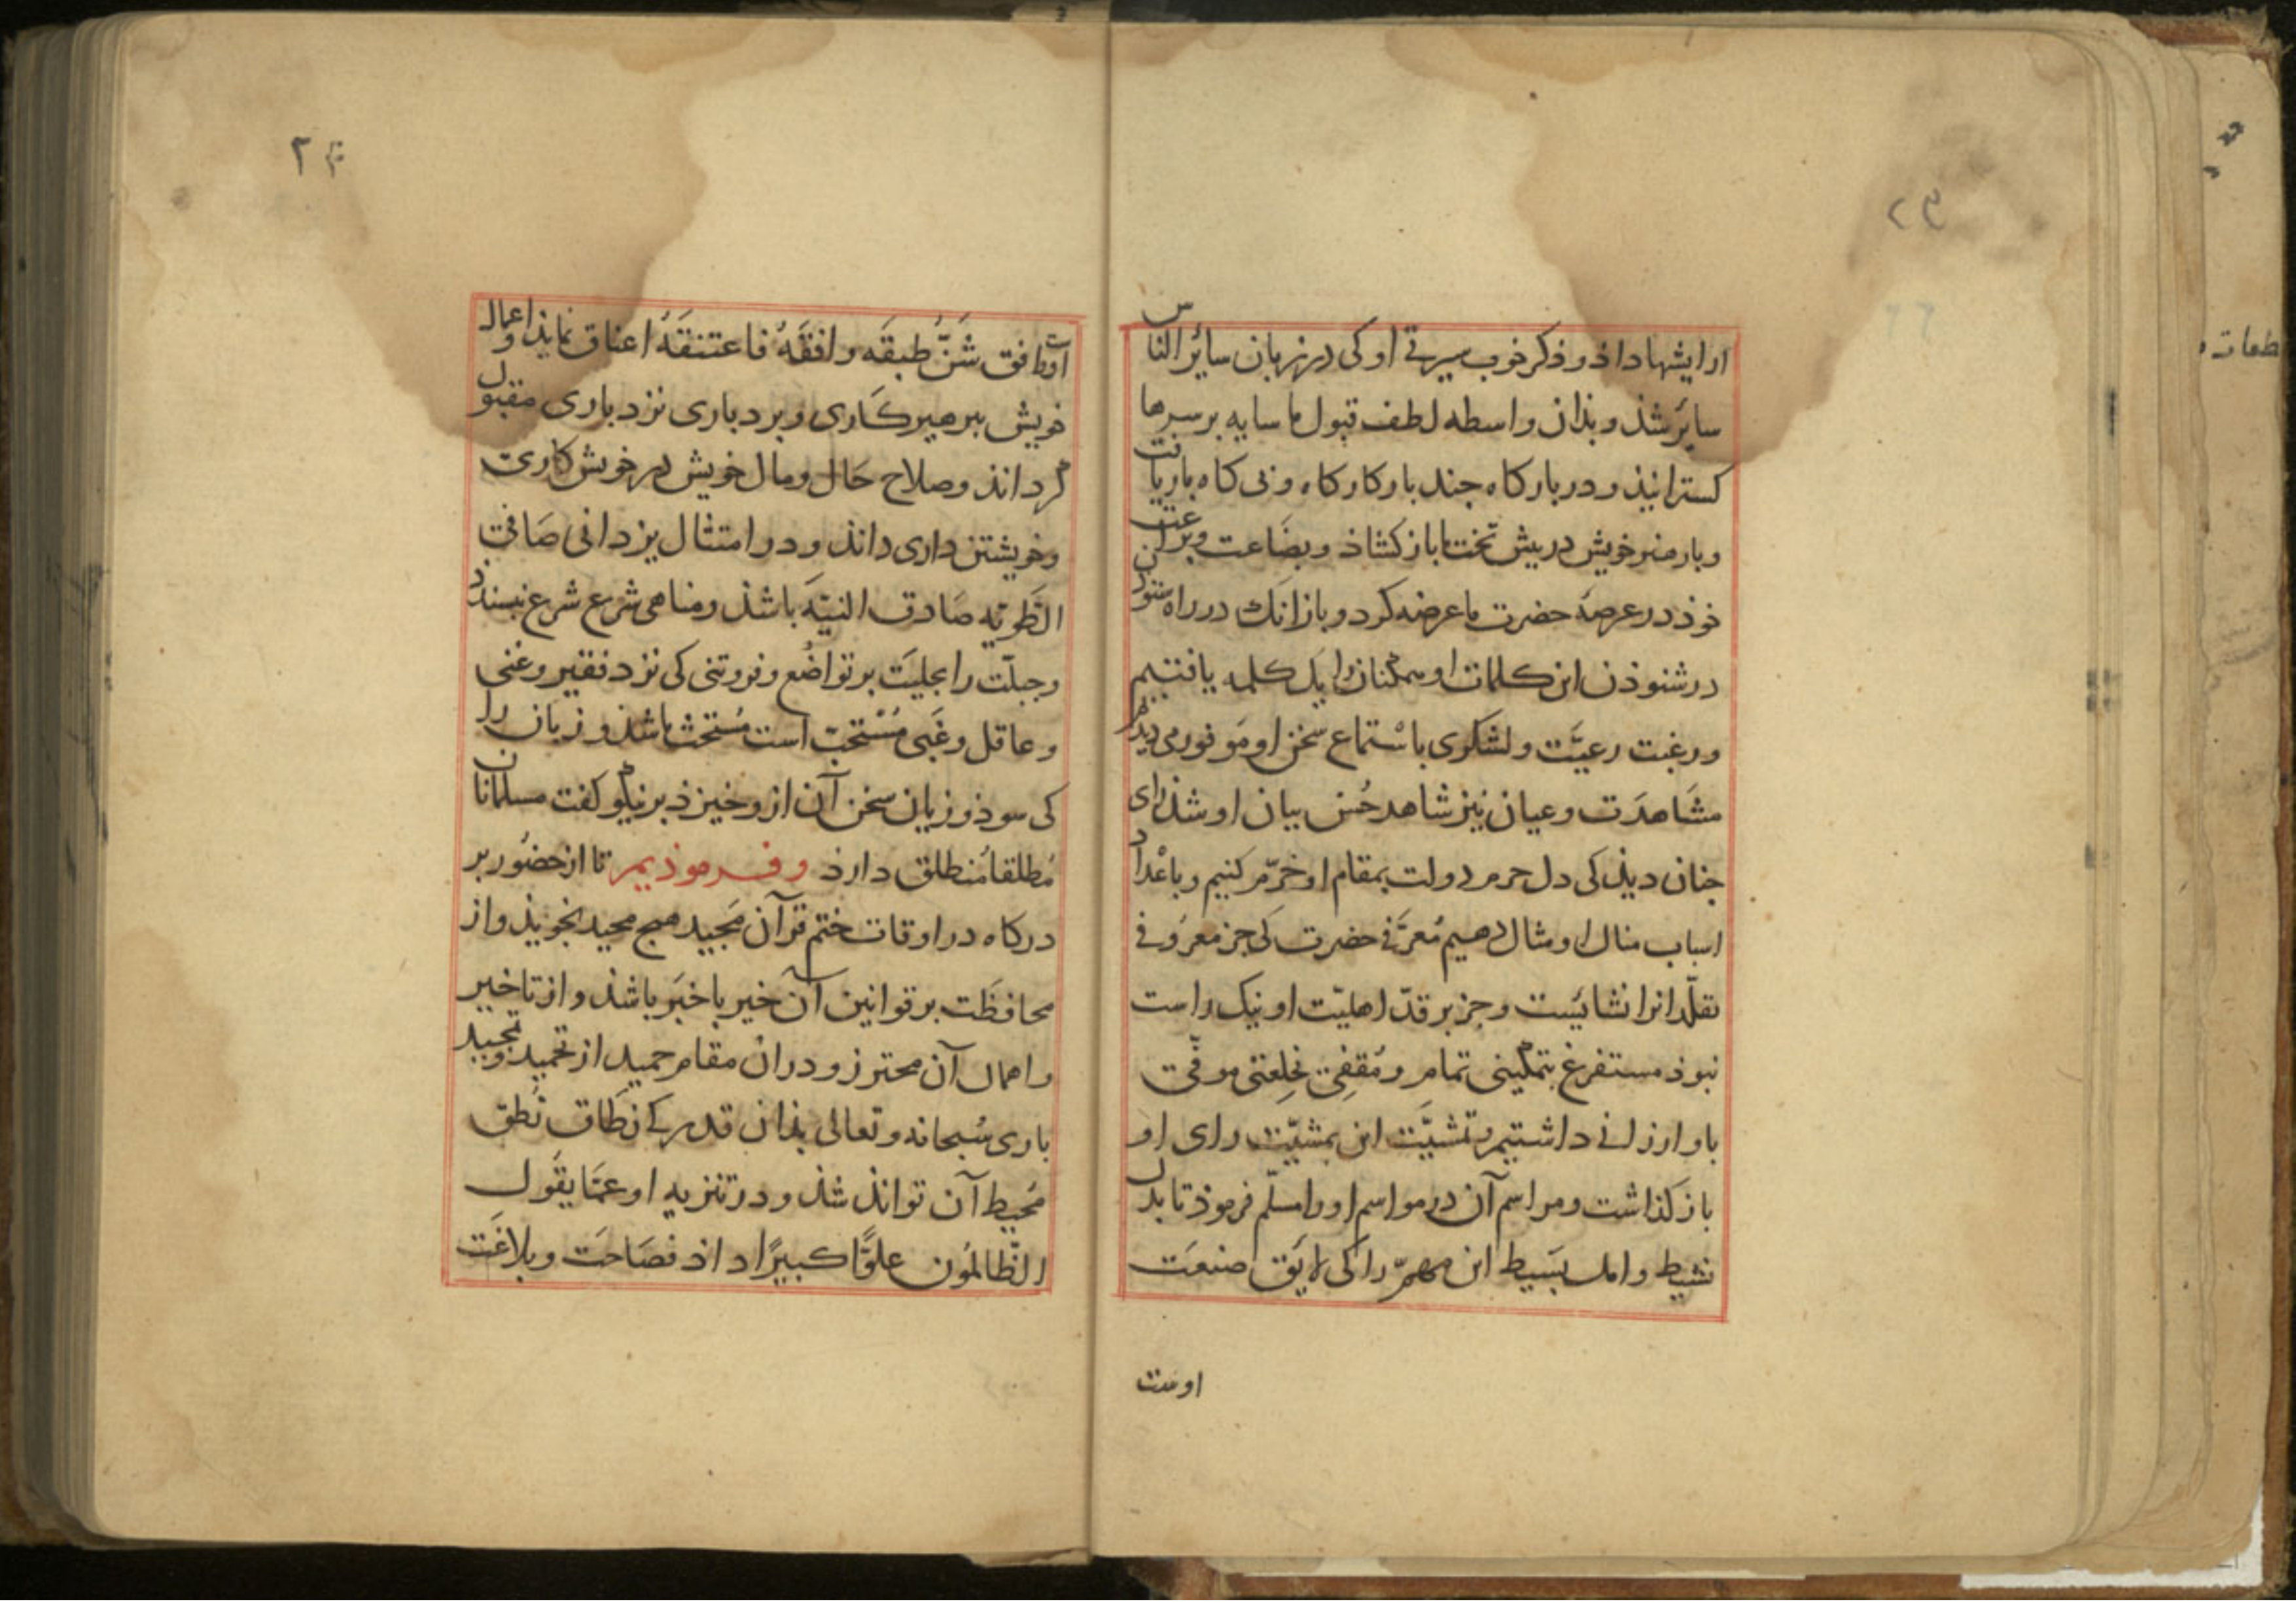 ۲۳
ارایشها داذ و ذکر خوب سیرتی او کی در زبان سائر الناس
سائر شذ و بذان واسطه لطف قبول ما سایه بر سرها
کسترانیذ و در بارکاه جند بار کارکاه و نی کاه بار یافت
و بار هنر خویش در بیش تخت ما باز کشاذ و بضاعت
خوذ در عرصهٔ حضرت ما عرضه کرد و باز انک در راه
در شنوذن این کلمات او همکنان را یک کلمه یافتیم
و رغبت رعیّت و لشکری باستماع سخن او موفور می دیذ
مشاهدت و عیان نیز شاهد حُسن بیان او شذ رای
جنان دیذ کی دل حرم دولت بمقام او خرّم کنیم و باعداد
اسباب منال او مثال دهیم مُعرّفی حضرت کی جز معروفی
تقلّد انرا نشائیست و جز بر قدّ اهلیّت او نیک راست
نبوذ مستفرغ بتمکینی تمام و مُقفی بخلعتی موفّی
باو ارزانی داشتیم و تمشیّت این بمشیّت رای او
باز کذاشت و مراسم آن در مواسم او را مسلّم فرموذ تا بدل
نشیط و امل بسیط این مهمّ را کی لایق صنعت
اوست
۲۴
اوست وافق شَنّ طبقَه وافقَهُ فاعتنقَهُ اعناق نمایذ و اعمال
خویش ببرهیزکاری و بردباری نزد باری مقبول
کرداند و صلاح حال و مال خویش در خویش کاری
و خویشتن داری داند و در امتثال یزدانی صافی
الطّویّه صادق النیّه باشذ و مناهی شرع شرع نبسندد
و جبلّت را بجلیَت بر تواضُع و فروتنی کی نزد فقیر و غنی
و عاقل و غَبی مُسْتحبّ است مُستحثّ باشذ و زبان را
کی سوذ و زیان سخن آن ازو خیزذ بر نیکو کفت مسلمانان
مُطلقا مُنطلق دارذ و فرموذیم تا از حضُور بر
درکاه در اوقات ختم قرآن مَجید هیج محید نجویذ و از
محافظَت بر قوانین آن خیر باخبَر باشذ و از تاخیر
و اهمال آن محترز و دران مقام حمید از تحمید و تمجید
باری سُبحانه و تعالی بذان قدر کی نطاق نُطق
مُحیط آن تواند شذ و در تنزیه او عمّا یقَول
الظّالمُون علوًّا کبیرًا داذ فصَاحَت و بلاغَت